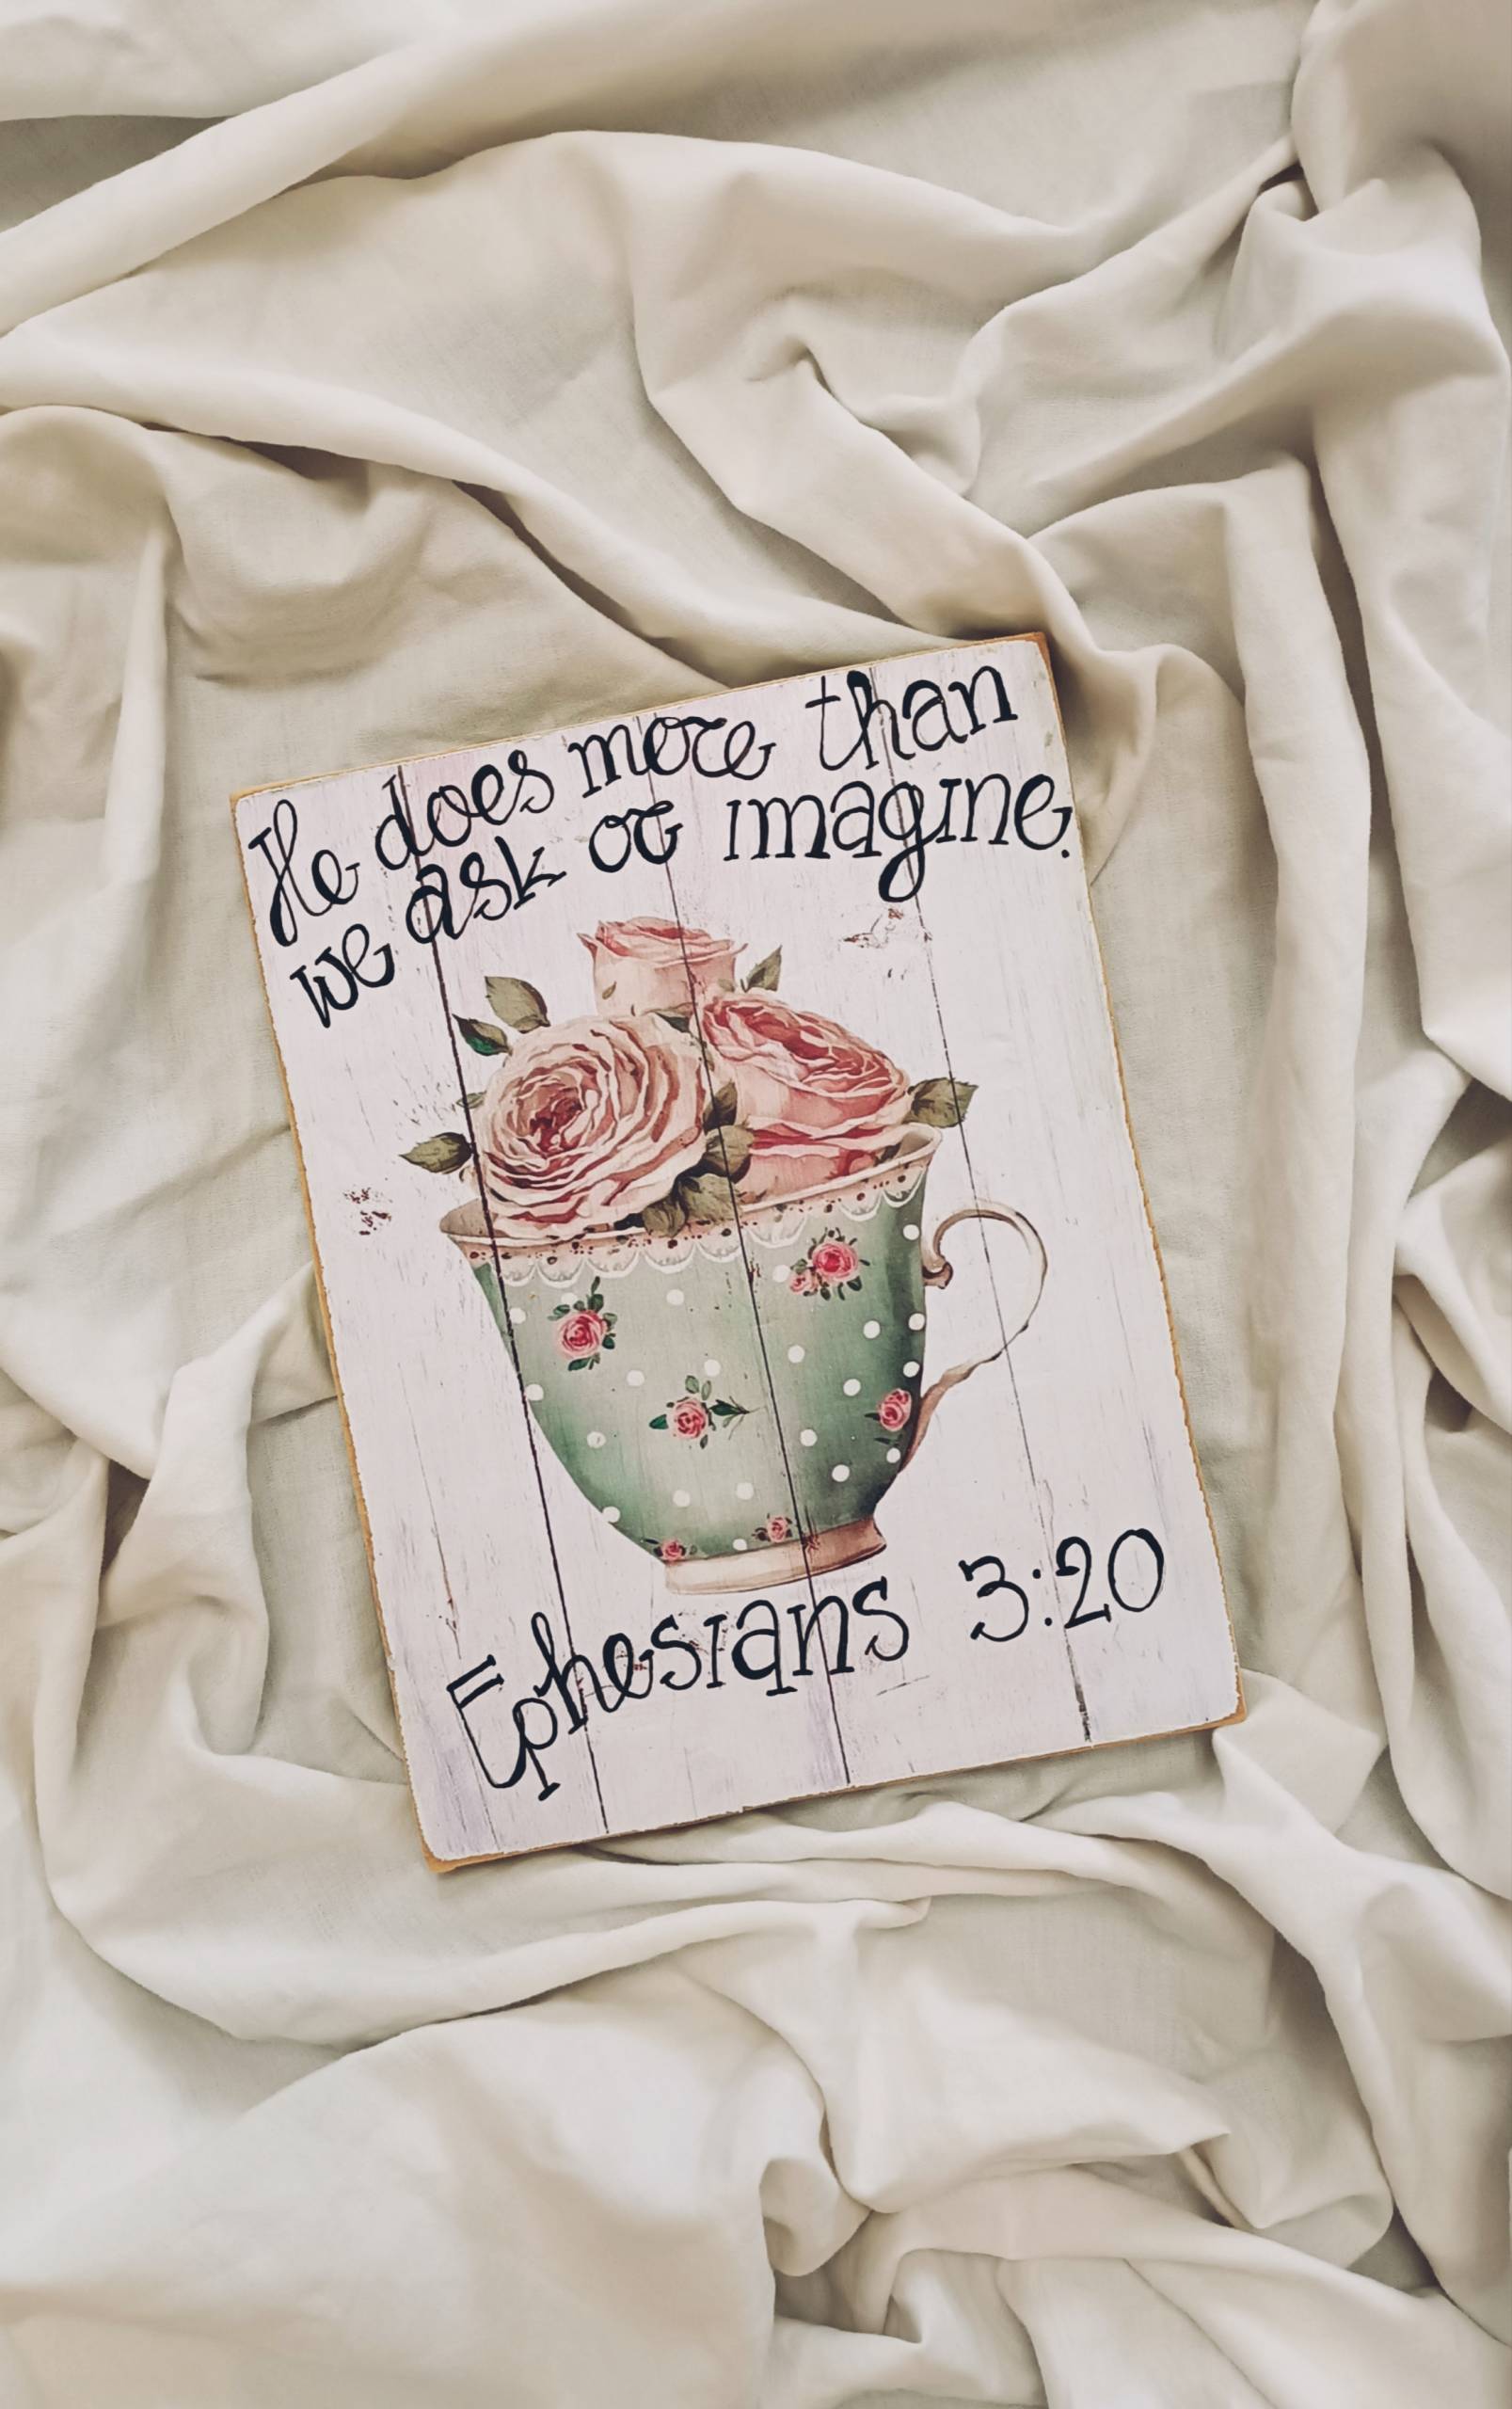 He does more than
we ask or imagine.
Ephesians 3:20